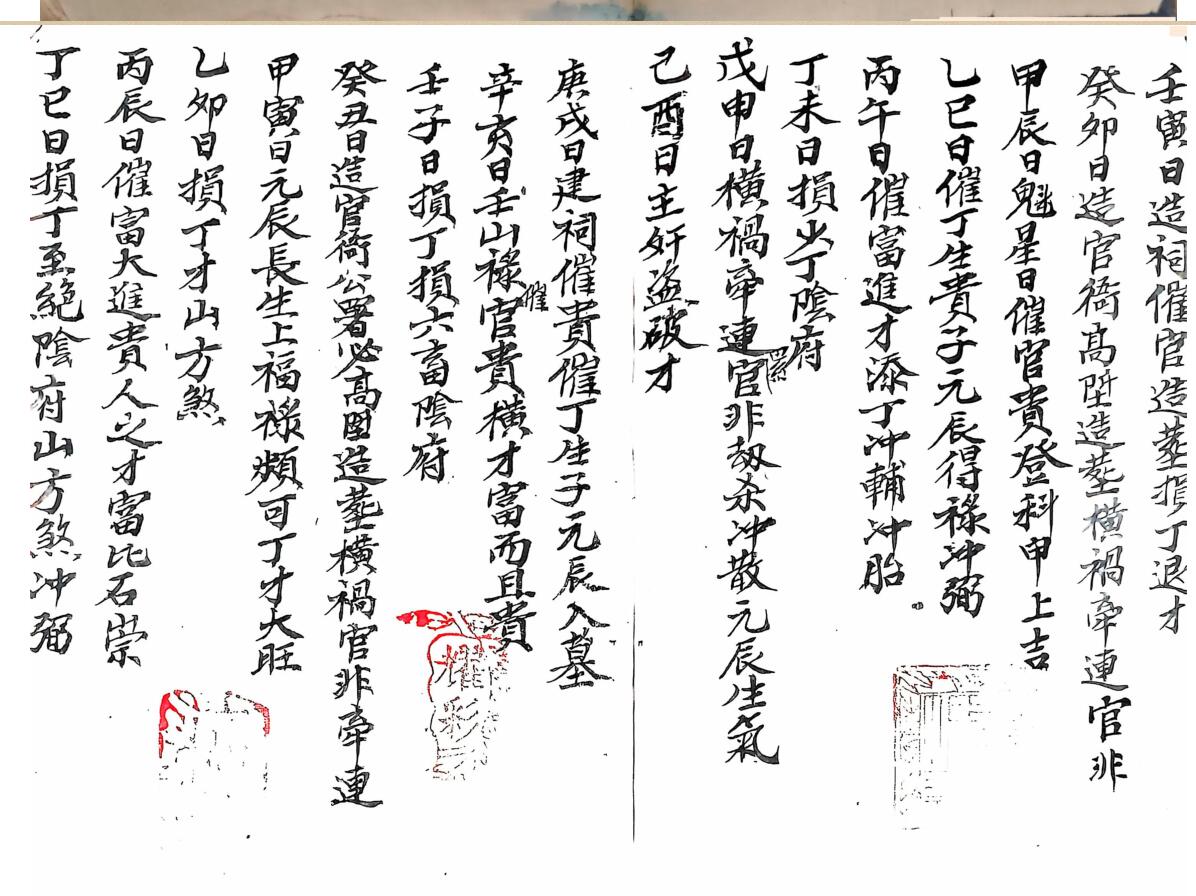 壬寅日造祠催官造塟損丁退才
癸卯日造官衙高陞造塟橫禍牽連官非
甲辰日魁星日催官貴登科甲上吉
乙巳日催丁生貴子元辰得祿冲弼
丙午日催富進才添丁冲輔冲胎
丁未日損少丁陰府
戊申日橫禍牽連官非劫杀冲散元辰生氣
己酉日主奸盗破才
庚戌日建祠催貴催丁生子元辰入墓
辛亥日壬山祿催官貴橫才富而且貴
壬子日損丁損六畜陰府
癸丑日造官衙公署必高陞造塟橫禍官非牽連
甲寅日元辰長生上福祿頗可丁才大旺
乙卯日損丁才山方煞
丙辰日催富大進貴人之才富比石崇
丁巳日損丁至絕陰府山方煞冲弼
耀彩